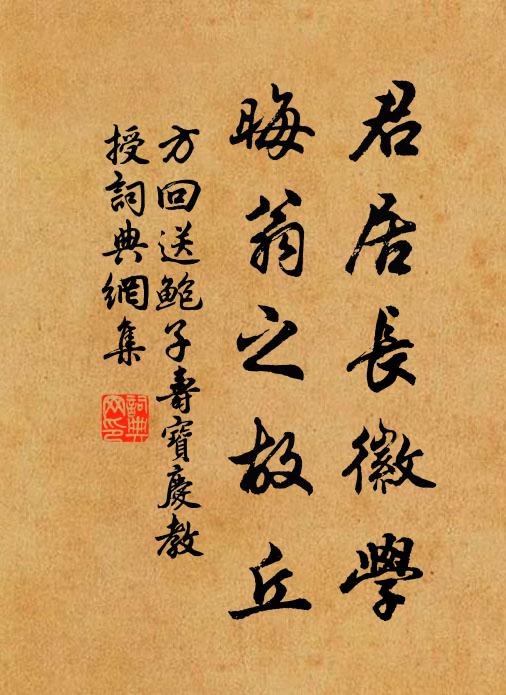 君居長徽學
晦翁之故丘
方回送鮑子壽寶慶教
授詞典網集
詞典
网印